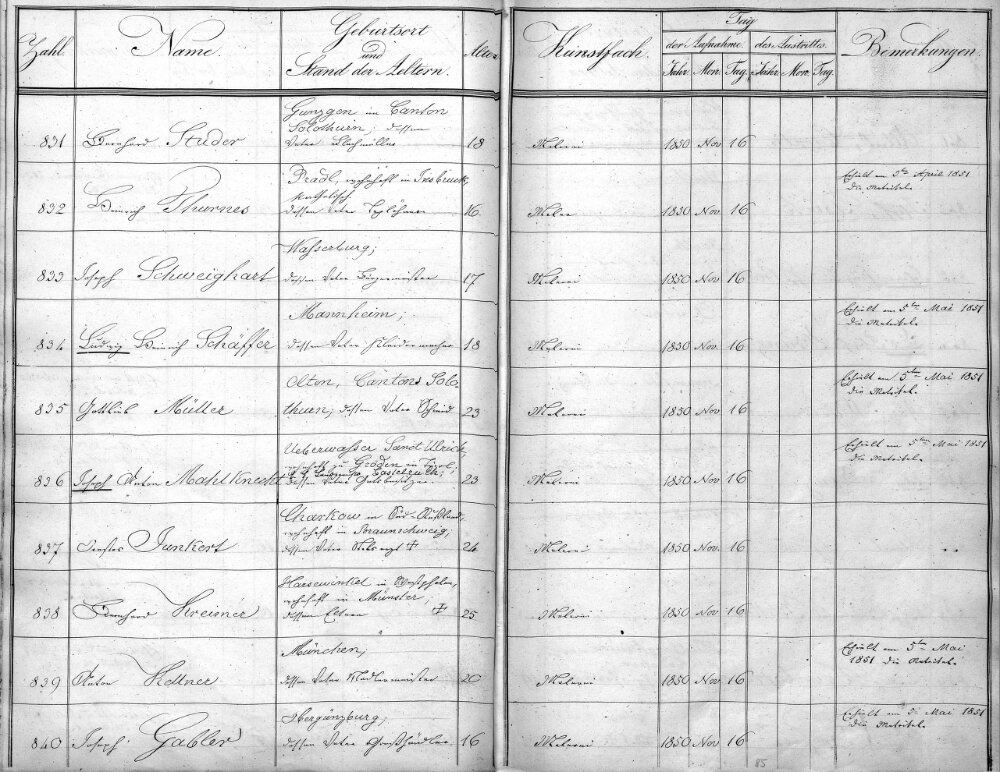 Zahl. Name. Geburtsort und Stand der Aeltern. Alter Kunstfach. Tag der Aufnahme Jahr. Mon. Tag. des Austrittes Jahr. Mon. Tag. Bemerkungen.
Gunzgen im Canton
Solothurn; dessen
831 Bernhard Studer Vater 18 Malerei 1850 Nov 16
Pradl, in Insbruck
katholisch.
832 Heinrich Thurnes dessen Vater 16 Maler 1850 Nov. 16 Erhielt am 5te April 1851
die Matrikel.
Wasserburg;
833 Joseph Schweighart dessen Vater Bürgermeister 17 Malerei 1850 Nov 16
Mannheim;
834 Ludwig Heinrich Schäffer dessen Vater Kleidermacher 18 Malerei 1850 Nov. 16 Erhielt am 5ten Mai 1851
die Matrikel.
Olten, Cantons Solo
835 Gottlieb Müller thurn; dessen Vater Schmid 23 Malerei 1850 Nov. 16 Erhielt am 5ten Mai 1851
die Matrikel.
Ueberwasser Sanct Ulrich,
zu Gröden in Tyrol,
Castelruth;
836 Joseph Anton Mahlknecht dessen Vater Gutsbesitzer 23 Malerei 1850 Nov 16 Erhielt am 5ten Mai 1851
die Matrikel.
Charkow in Süd-Rußland,
in Braunschweig;
837 Junkert dessen Vater † 24 Malerei 1850 Nov. 16
Harsewinkel in Westphalen,
in Münster;
838 Bernhard Kreimer dessen Eltern † 25 Malerei 1850 Nov. 16
München;
839 Anton Kellner dessen Vater 20 Malerei 1850 Nov. 16 Erhielt am 5ten Mai
1851 die Matrikel.
Obergünzburg;
840 Joseph Gabler dessen Vater Großhändler. 16 Malerei 1850 Nov 16 Erhielt am 5. Mai 1851
die Matrikel.
85